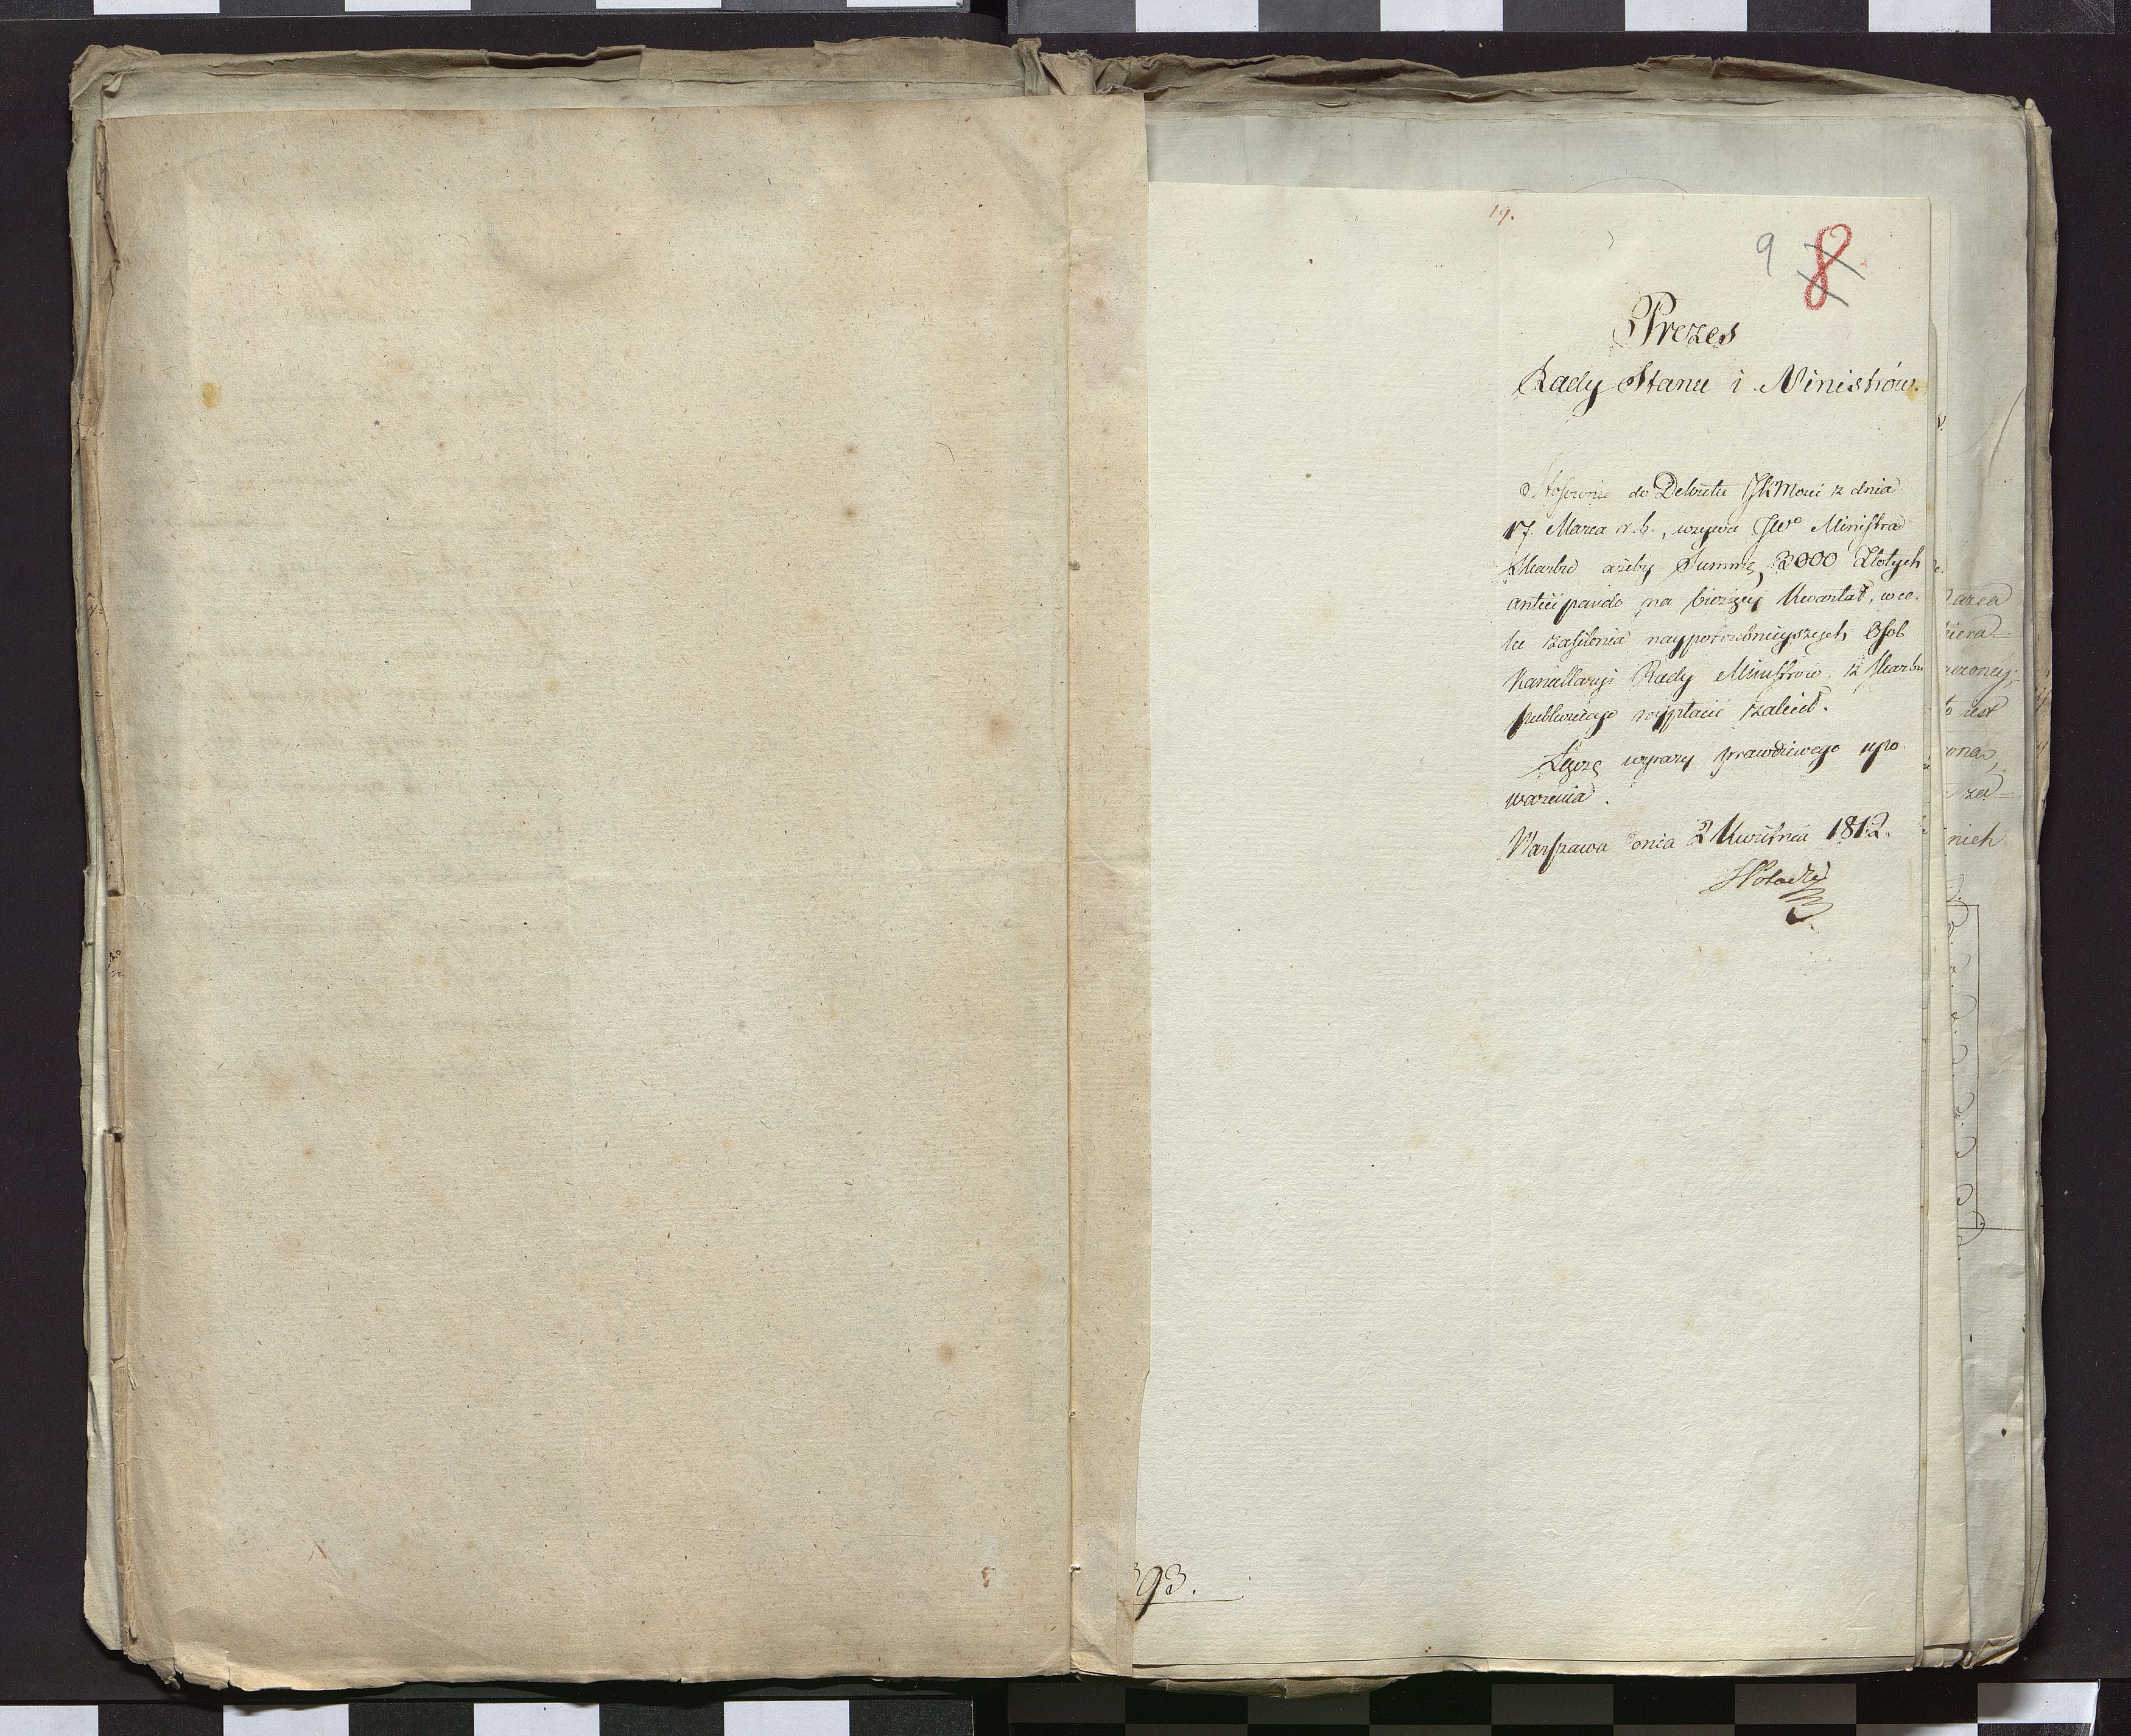 19.
9 8
Prezes
Rady Stanu i Ministrów.
Stosownie do Dekretu JKMości z dnia
17. Marca r. b., wzywa JWo Ministra
Skarbu ażeby Summę 2000 Złotych
anticipando na bieżący Kwartał, w ce-
lu zasilenia naypotrzebnieyszych Osob
Kancellaryi Rady Ministrów, z Skarbu
publicznego wypłacić zalecił.
Łączę wyrazy prawdziwego upo-
ważenia.
Warszawa dnia 2 Kwietnia 1812.
93.
nich